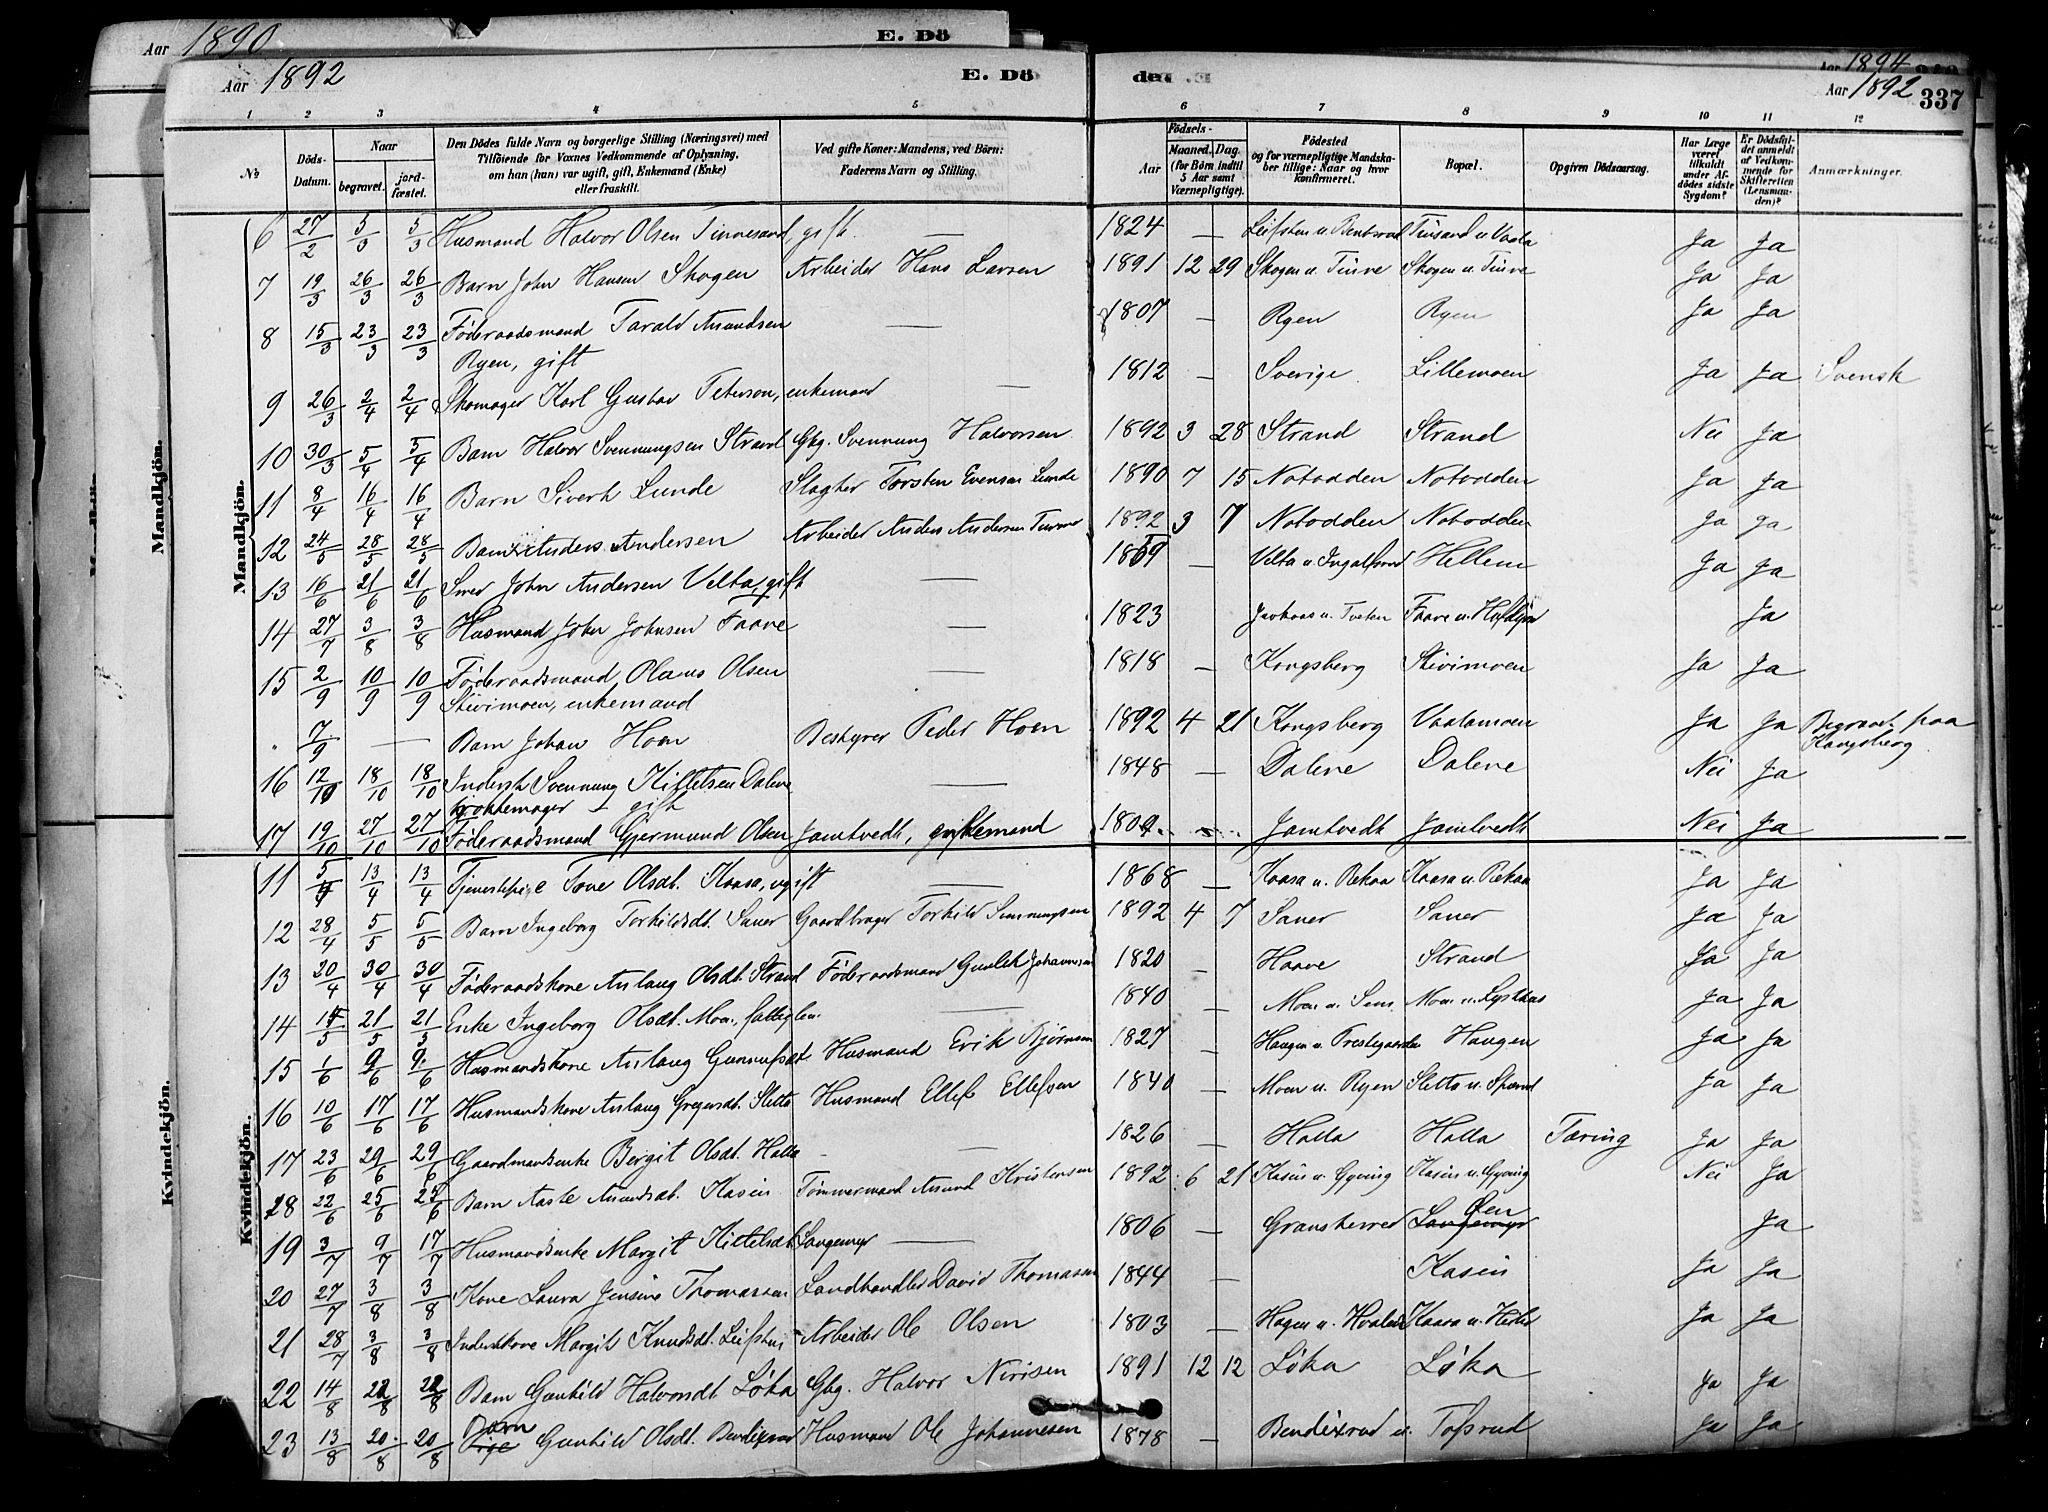 Aar 1890 E. Dö
Aar 1894
Aar 1892 E. Dö de Aar 1892 337
1 2 3 4 5 6 7 8 9 10 11 12
№ Döds-Datum. Naar begravet. jordfæstet.
Den Dödes fulde Navn og borgerlige Stilling (Næringsvei) med
Tilföiende for Voxnes Vedkommende af Oplysning,
om han (hun) var ugift, gift, Enkemand (Enke)
eller fraskilt.
Ved gifte Koner: Mandens, ved Börn:
Faderens Navn og Stilling.
Födsels- Aar Maaned. Dag.
(for Börn indtil
5 Aar samt
Værnepligtige).
Födested
og for værnepligtige Mandskaber tillige: Naar og hvor
konfirmeret.
Bopæl.
Opgiven Dödsaarsag.
Har Læge
været
tilkaldt
under Afdödes sidste
Sygdom?
Er Dödsfaldet anmeldt
af Vedkommende for
Skifteretten
(Lensmanden)?
Anmærkninger.
Mandkjön.
6 27/2 5/3 5/3 Husmand Halvor Olsen Tinnesand, gift — 1824 — Leifsten u. Bentsrud Tinsand u. Vaala Ja Ja
7 19/3 26/3 26/3 Barn John Hansen Skogen Arbeider Hans Larsen 1891 12 29 Skogen u. Tinve Skogen u. Tinve Ja Ja
8 15/3 23/3 23/3 Föderaadsmand Tarald Amundsen — 1807 — Ryen Ryen Ja Ja
Ryen, gift
9 26/3 2/4 2/4 Skomager Karl Gustav Peterson, enkemand — 1812 — Sverige Lillemoen Ja Ja Svensk
10 30/3 5/4 5/4 Barn Halvor Svennungsen Strand Gbg. Svennung Halvorsen 1892 3 28 Strand Strand Nei Ja
11 8/4 16/4 16/4 Barn Sivert Lunde Slagter Torsten Evensen Lunde 1890 7 15 Notodden Notodden Ja Ja
12 24/5 28/5 28/5 Barn Anders Andersen Arbeider Anders Andersen 1892 3 7 Notodden Notodden Ja Ja
13 16/6 21/6 21/6 Smed John Andersen Velta, gift — — Velta u. Ingolfsrud Ja Ja
14 27/7 3/8 3/8 Husmand John Johnsen Faave — 1823 u. Tveten Ja
15 2/9 10/9 10/9 Föderaadsmand Olaus Olsen — 1818 — Kongsberg Stivimoen Ja Ja
Stivimoen, enkemand
" 7/9 — Barn Johan Hoen Bestyrer Peder Hoen 1892 4 21 Kongsberg Vaalamoen Ja Ja Begravet paa
Kongsberg
16 12/10 18/10 18/10 Inderst Svennung Kittelsen Dalene — 1848 — Dalene Dalene Nei Ja
gift
17 19/10 27/10 27/10 Föderaadsmand Gjermund Olsen Jamtvedt, enkemand 1809 Jamtvedt Jamtvedt Nei Ja
Kvindekjön.
11 5/4 13/4 13/4 Tjenestepige Tone Olsdt. Kaasa, ugift — 1868 — Kaasa u. Rekaa Kaasa u. Rekaa Ja Ja
12 28/4 5/5 5/5 Barn Ingeborg Torkildsdt. Sauer Gaardbruger Torkild Svennungsen 1892 4 7 Sauer Sauer Ja Ja
13 20/4 30/4 30/4 Föderaadskone Aslaug Olsdt. Strand Föderaadsmand Gunlek Johannesen 1820 — Haave Strand Ja Ja
14 15/5 21/5 21/5 Enke Ingeborg Olsdt. Moen, fattiglem. — 1840 — Moen u. Sem Moen u. Lysthus Ja Ja
15 1/6 9/6 9/6 Husmandskone Aslaug Gunnufsdt Husmand Erik Bjørnsen 1827 — Haugen u. Prestegaarden Haugen Ja Ja
16 10/6 17/6 17/6 Husmandskone Aslaug Gregersdt. Sletta Husmand Ellef Ellefsen 1840 — Moen u. Ryen Sletta u. Ja Ja
17 23/6 29/6 29/6 Gaardmandsenke Bergit Olsdt. Halla — 1826 — Halla Halla Tæring Ja Ja
28 22/6 25/6 25/6 Barn Aaste Amundsdt. Kasin Tømmermand Amund Kristensen 1892 6 21 Kasin u. Kasin u. Nei Ja
19 3/7 9/7 17/7 Husmandsenke Margit Kittelsdt. Langemyr — 1806 — Gransherred Langemyr Øen Ja
20 27/7 3/8 3/8 Kone Laura Jensine Thomassen Landhandler David Thomassen 1844 — Kasin Ja Ja
21 28/7 3/8 3/8 Inderstkone Margit Knudsdt. Leifsthus Arbeider Ole Olsen 1803 — Hagen u. Hvalen Kaasa u. Ja Ja
22 14/8 22/8 22/8 Barn Gunhild Halvorsdt Løka Gbg. Halvor Nirisen 1891 12 12 Løka Løka Ja Ja
23 13/8 20/8 20/8 Barn Gunhild Olsdt. Bendixrud Husmand Ole Johannesen 1878 Bendixrud u. Tofsrud Ja Ja